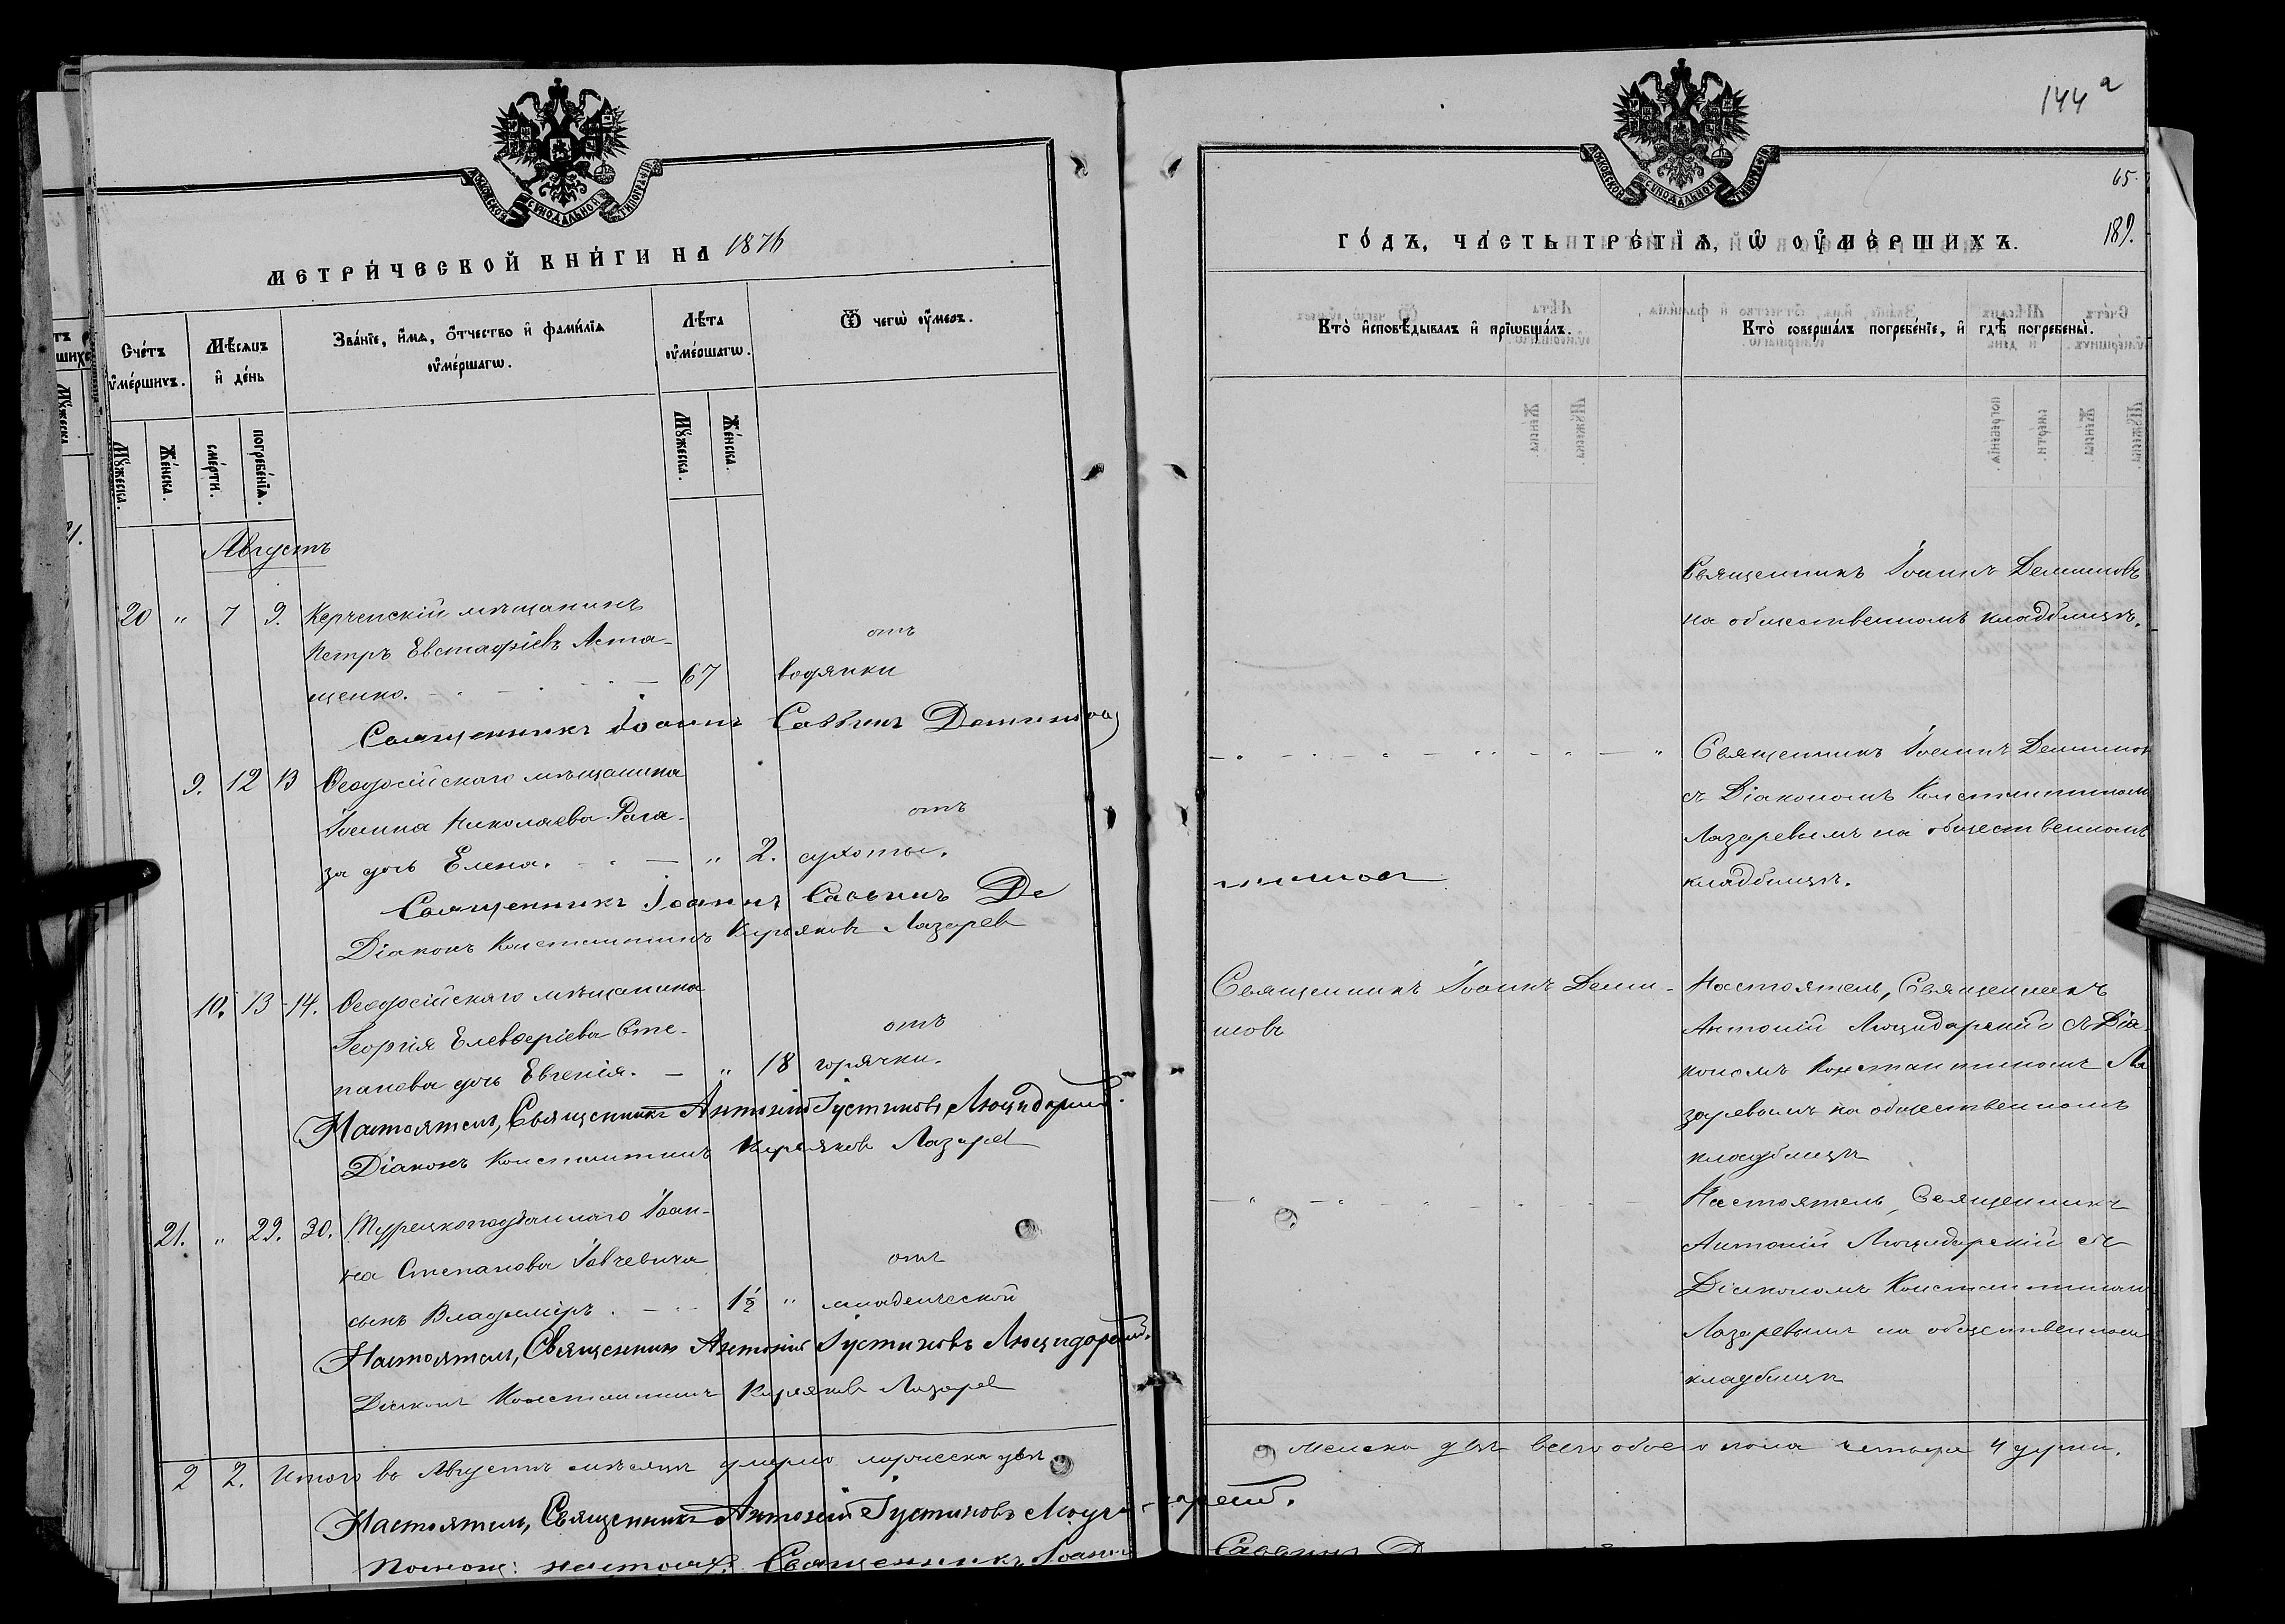 144 а
65.
189.
МОСКОВСКОЙ СѴНОДАЛЬНОЙ ТИПОГРАФІИ
МОСКОВСКОЙ СѴНОДАЛЬНОЙ ТИПОГРАФІИ
МЕТРИ́ЧЕСКОЙ КНИ́ГИ НА 1876
ГО́ДЪ, ЧА́СТЬ ТРЕ́ТЇѦ, Ѡ ОУ҆МЕ́РШИХЪ.
Сче́тъ оу҆ме́ршихъ.
Мꙋ́жеска.
Же́нска.
Мѣ́сѧцъ и҆ де́нь
сме́рти.
погребе́нїѧ.
Зва́нїе, и҆́мѧ, ѻ҆́тчество и҆ фами́лїѧ
оу҆ме́ршагѡ.
Лѣ́та оу҆ме́ршагѡ.
Мꙋ́жеска.
Же́нска.
Ѿ чегѡ̀ оу҆́меръ.
Кто̀ и҆сповѣ́дывалъ и҆ прїѡбща́лъ.
Кто̀ соверша́лъ погребе́нїе, и҆ гдѣ̀ погребены̀.
Августъ
20 " 7 9. Керченскій мѣщанинъ
Петръ Евстафіевъ Аста-
щенко. 67 отъ водянки
Священникъ Іоаннъ Деминовъ
на общественномъ кладбищѣ.
Священникъ Іоаннъ Саввинъ Деминовъ
9. 12 13 Ѳеодосійскаго мѣщанина
Іоанна Николаева Рага-
за дочь Елена. " 2. отъ сухоты.
Священникъ Іоаннъ Деминов
съ Діакономъ Константиномъ
Лазаревымъ на общественномъ
кладбищѣ.
Священникъ Іоаннъ Саввинъ Деминовъ
Діаконъ Константинъ Кирьяковъ Лазарев
10. 13 14. Ѳеодосійскаго мѣщанина
Георгія Елевѳеріева Сте-
панова дочь Евгенія. " 18 отъ горячки.
Священникъ Іоаннъ Деми-
новъ
Настоятель, Священникъ
Антоній Люцидарскій съ Діа-
кономъ Константиномъ Ла
заревымъ на общественномъ
кладбищѣ
Настоятель, Священникъ Антоній Іустиновъ Люцидарскій.
Діаконъ Константинъ Кирьяковъ Лазарев
21. " 29. 30. Турецкоподданнаго Іоан-
на Степанова
сынъ Владиміръ. 1½ " отъ младенческой
Настоятель, Священникъ
Антоній Люцидарскій съ
Діакономъ Константиномъ
Лазаревымъ на общественномъ
кладбищѣ
Настоятель, Священникъ Антоній Іустиновъ Люцидарскій.
Діаконъ Константинъ Кирьяковъ Лазарев
2 2. Итого въ Августѣ мѣсяцѣ умерло мужеска двѣ
женска двѣ всего обоего пола четыре 4 души.
Настоятель, Священникъ Антоній Іустиновъ Люцидарскій.
Помощ: настоят: Священникъ Іоаннъ Саввинъ